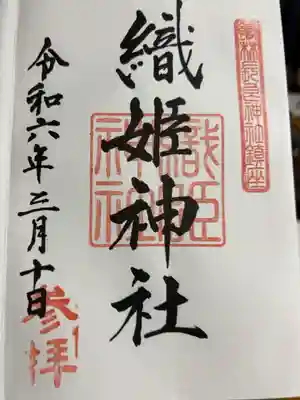 神社鎮座
織姫神社
織姫神社
令和六年三月十日
参拝